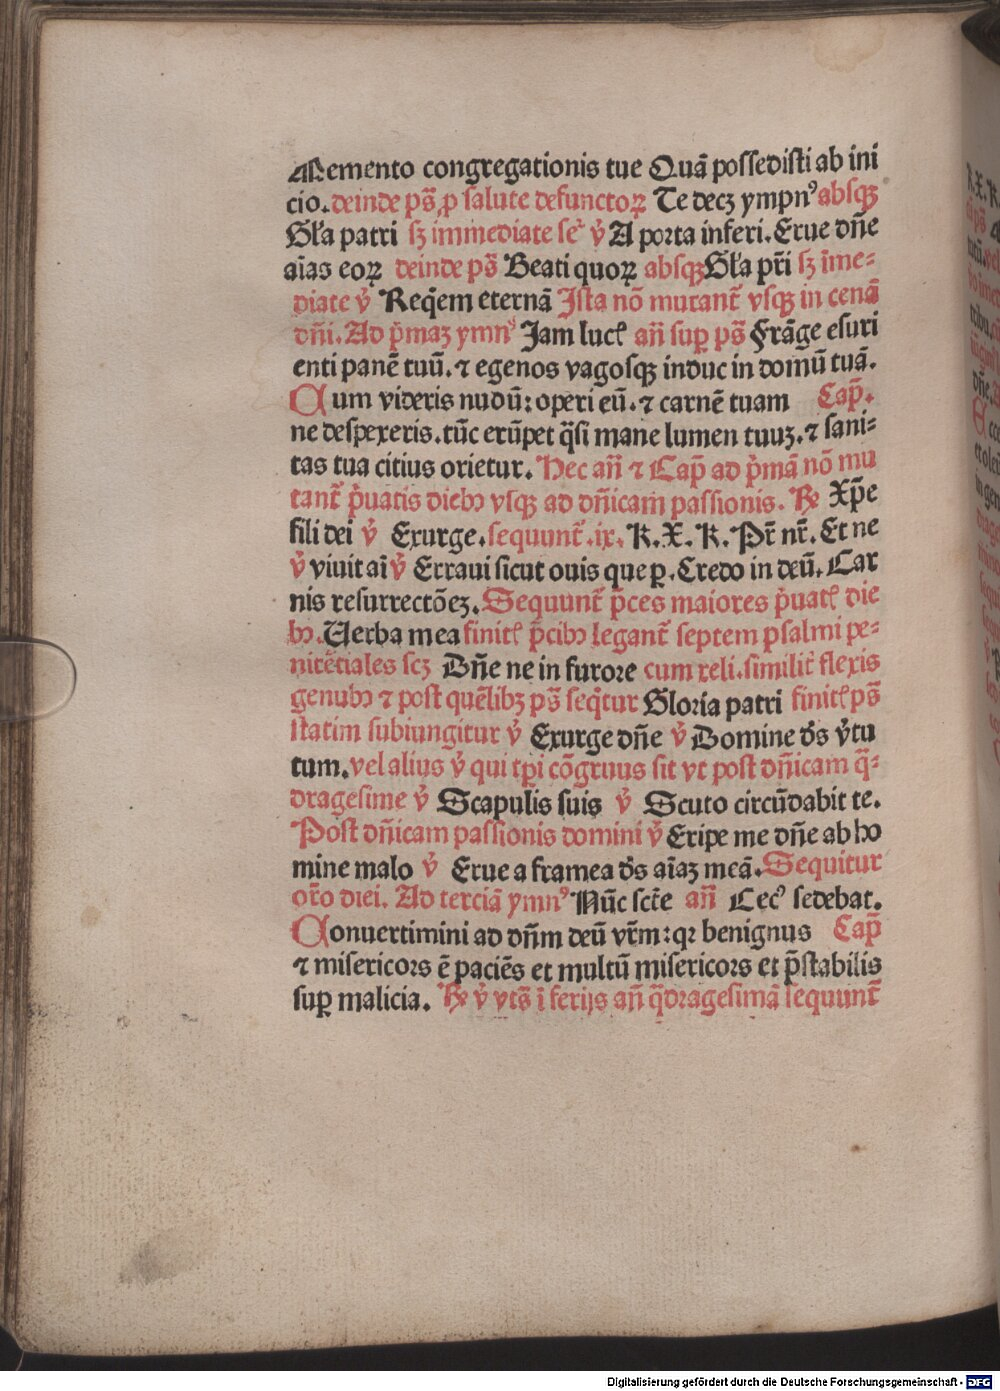 Memento congregationis tue Quā possedisti ab ini
cio. deinde ps̄ ꝓ salute defunctoꝝ Te decꝫ ympnꝰ absqꝫ
Gl̄a patri sꝫ immediate seͨ v̄ A porta inferi. Erue dn̄e
aīas eoꝝ deinde ps̄ Beati quoꝝ absqꝫ Gl̄a pr̄i sꝫ īme⸗
diate v̄ Req̄em eternā Ista nō mutant̄ vsqꝫ in cenā
dn̄i. Ad p̄maꝫ ymnꝰ Jam lucꝭ an̄ suꝑ ps̄ Frāge esuri
enti panē tuū. ⁊ egenos vagosqꝫ induc in domū tuā.
Cum videris nudū: operi eū. ⁊ carnē tuam Cap̄.
ne despexeris. tūc erūpet q̄si mane lumen tuuꝫ. ⁊ sani⸗
tas tua citius orietur. Hec an̄ ⁊ Cap̄ ad p̄mā nō mu
tant̄ p̄uatis diebꝰ vsqꝫ ad dn̄icam passionis. ℞ Xp̄e
fili dei v̄ Exurge. sequunt̄ .ix. K. X. K. Pr̄ nr̄. Et ne
v̄ viuit aī v̄ Erraui sicut ouis que ꝑ. Credo in deū. Car
nis resurrectōeꝫ. Sequunt̄ p̄ces maiores p̄uatꝭ die
bꝰ. Uerba mea finitꝭ p̄cibꝰ legant̄ septem psalmi pe⸗
nitētiales scꝫ Dn̄e ne in furore cum reli. similit̄ flexis
genubꝰ ⁊ post quēlibꝫ ps̄ seq̄tur Gloria patri finitꝭ ps̄
statim subiungitur v̄ Exurge dn̄e v̄ Domine ds̄ v̄tu
tum. vel alius v̄ qui tꝑi cōgruus sit vt post dn̄icam q̄⸗
dragesime v̄ Scapulis suis v̄ Scuto circūdabit te.
Post dn̄icam passionis domini v̄ Eripe me dn̄e ab ho
mine malo v̄ Erue a framea ds̄ aīaꝫ meā. Sequitur
or̄o diei. Ad terciā ymnꝰ Nūc sct̄e an̄ Cecꝰ sedebat.
Conuertimini ad dn̄m deū vr̄m: qꝛ benignus Cap̄
⁊ misericors ē paciēs et multū misericors et p̄stabilis
suꝑ malicia. ℞ v̄ vts̄ ī ferijs an̄ q̄dragesimā sequunt̄
Digitalisierung gefördert durch die Deutsche Forschungsgemeinschaft - DFG